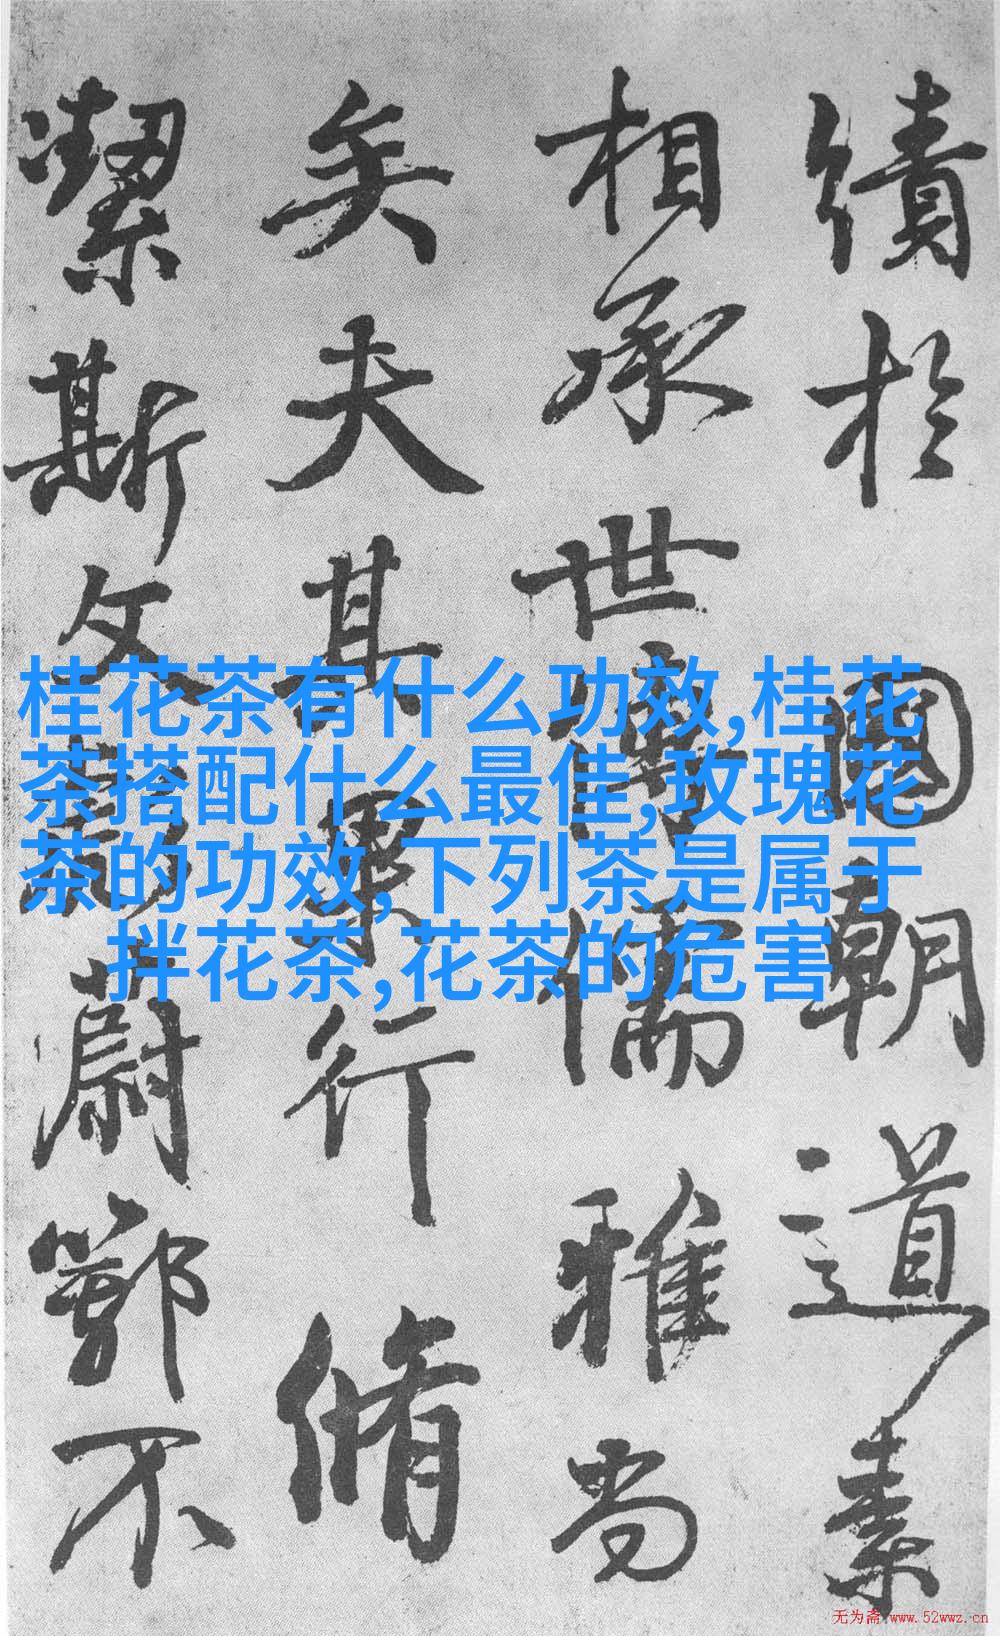 績於國朝道素
相承世篤儒雅尚
矣夫其果行脩
潔斯文蔚鄂不
桂花茶有什么功效,桂花
茶搭配什么最佳,玫瑰花
茶的功效,下列茶是属于
拌花茶,花茶的危害
无为斋 www.52wwz.cn